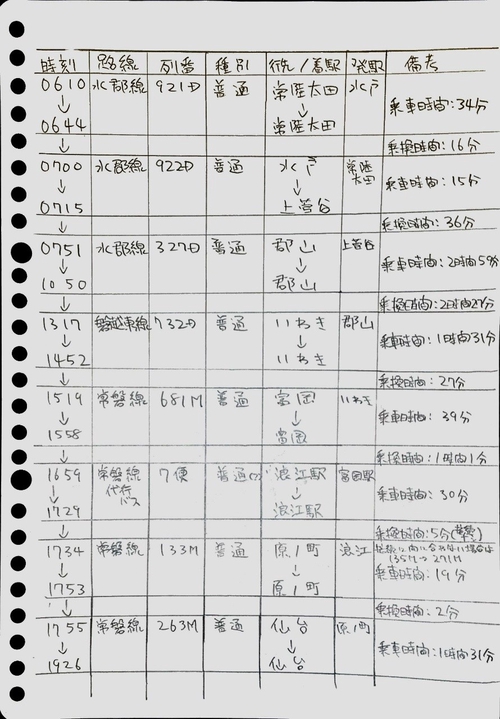 時刻 路線 列番 種別 行先/着駅 発駅 備考
0610 水郡線 921D 普通 常陸太田 水戸
↓ ↓ 乗車時間:34分
0644 常陸太田
↓ 乗換時間:16分
0700 水郡線 922D 普通 水戸 常陸太田
↓ ↓ 乗車時間:15分
0715 上菅谷
↓ 乗換時間:36分
0751 水郡線 327D 普通 郡山 上菅谷
↓ ↓ 乗車時間:2時間59分
1050 郡山
↓ 乗換時間:2時間27分
1317 磐越東線 732D 普通 いわき 郡山
↓ ↓ 乗車時間:1時間31分
1452 いわき
↓ 乗換時間:27分
1519 常磐線 681M 普通 富岡 いわき
↓ ↓ 乗車時間:39分
1558 富岡
↓ 乗換時間:1時間1分
1659 常磐線 7便 普通 浪江駅 富岡駅
↓ 代行バス ↓ 乗車時間:30分
1729 浪江駅
↓ 乗換時間:5分
1734 常磐線 133M 普通 原ノ町 浪江 に間に合わない場合は
135M→271M
↓ ↓ 乗車時間:19分
1753 原ノ町
↓ 乗換時間:2分
1755 常磐線 263M 普通 仙台 原ノ町
↓ ↓ 乗車時間:1時間31分
1926 仙台